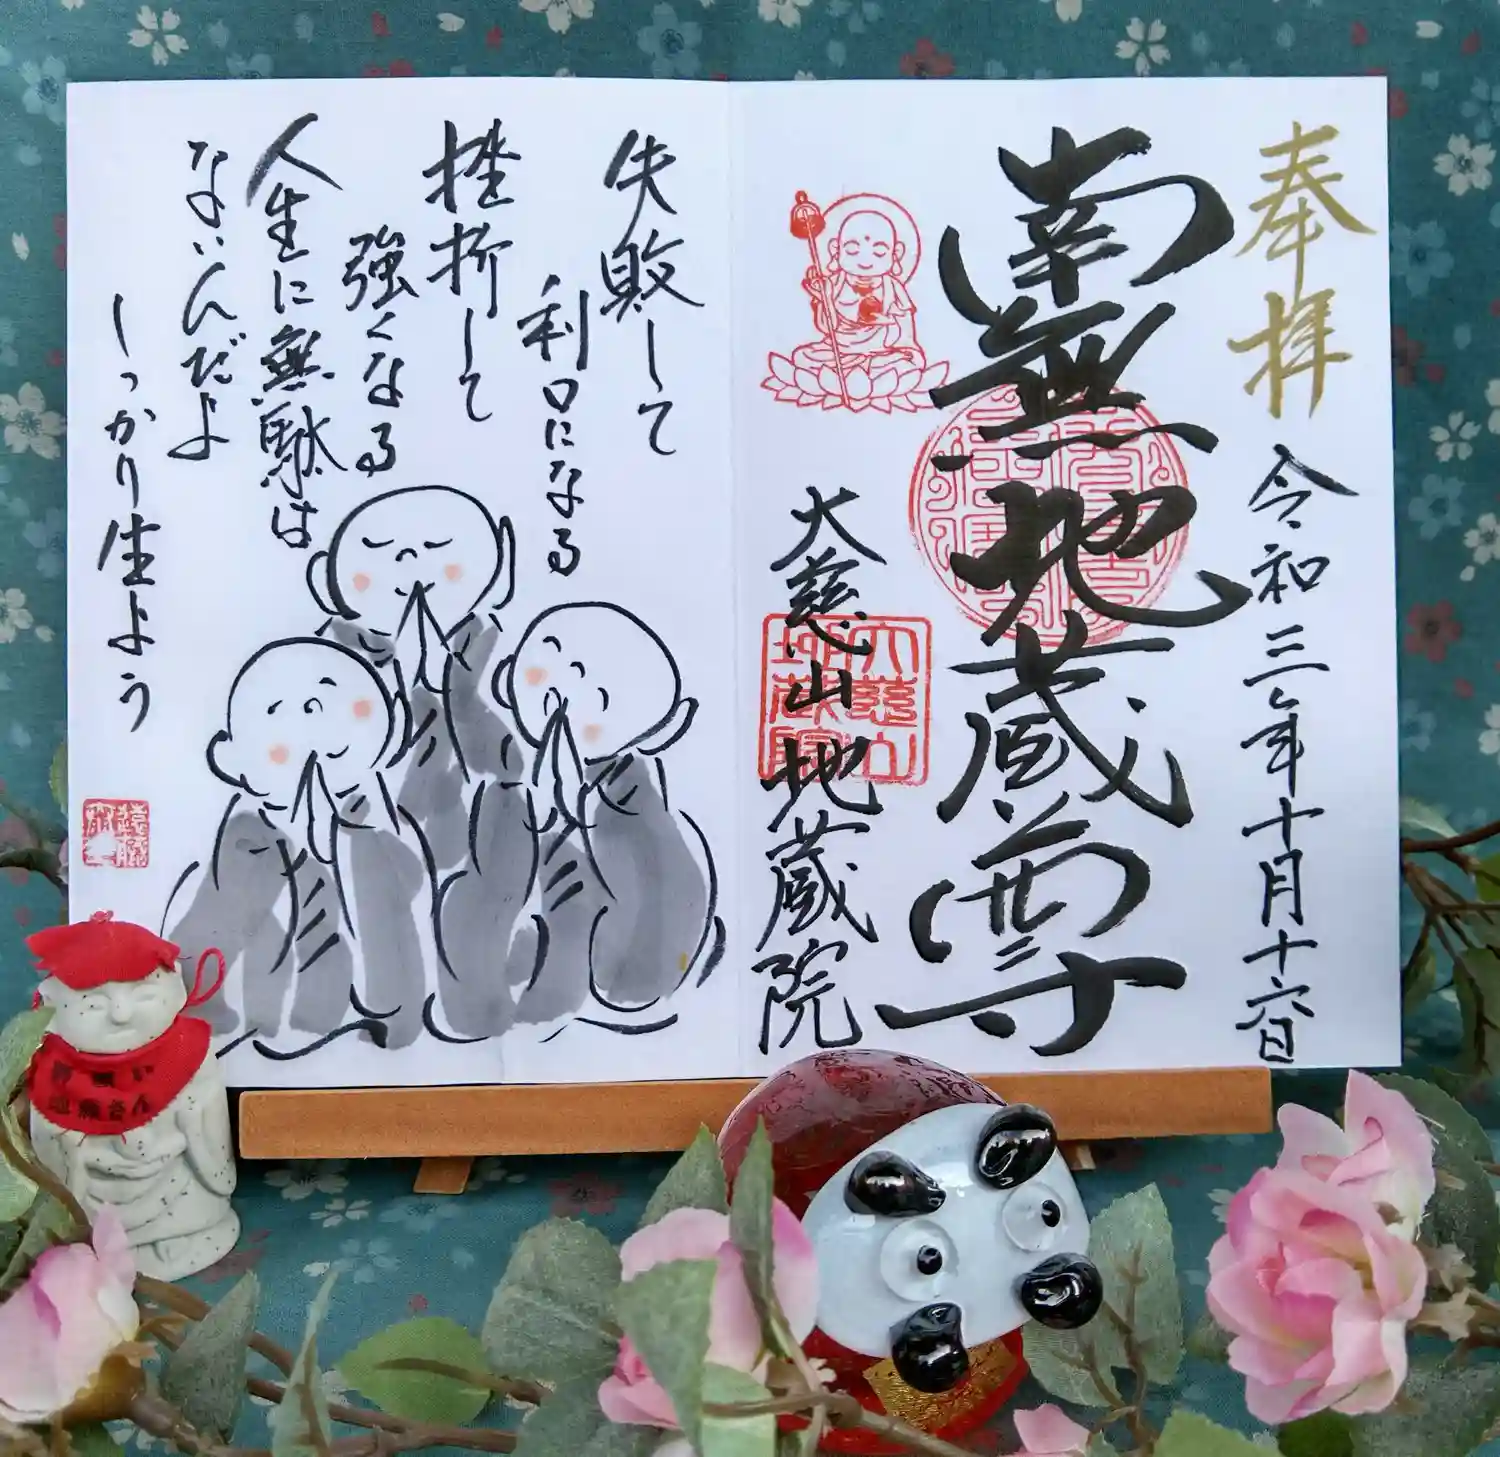 奉拝
令和三年十月十六日
南無地蔵尊
大慈山地蔵院
大慈山
地蔵院
失敗して
利口になる
挫折して
強くなる
人生に無駄は
ないんだよ
しっかり生よう